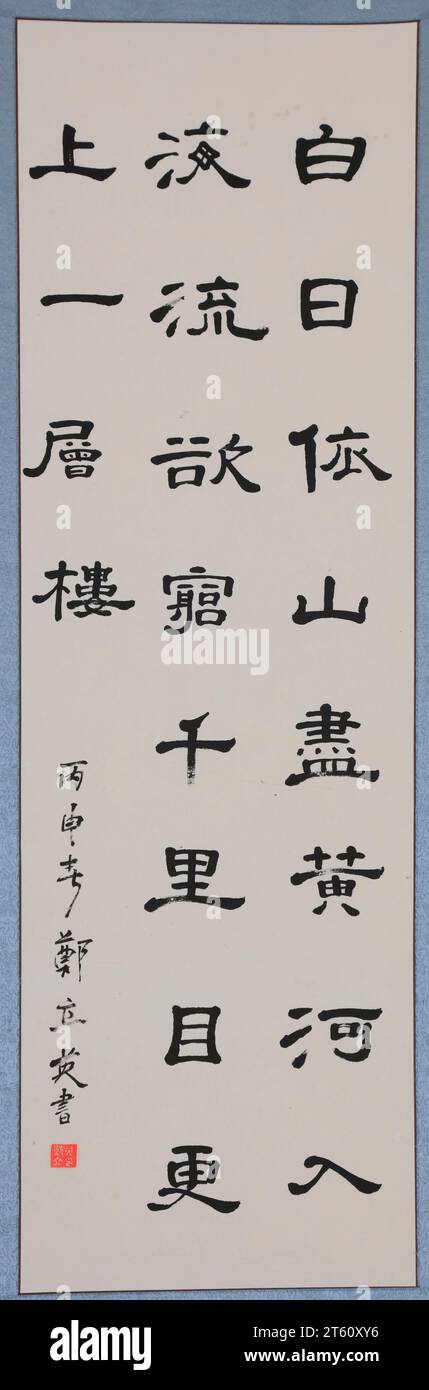 白日依山盡黃河入
海流欲窮千里目更
上一層樓
丙申春鄭立英書
alamy
Image ID: 2T60XY6
www.alamy.com